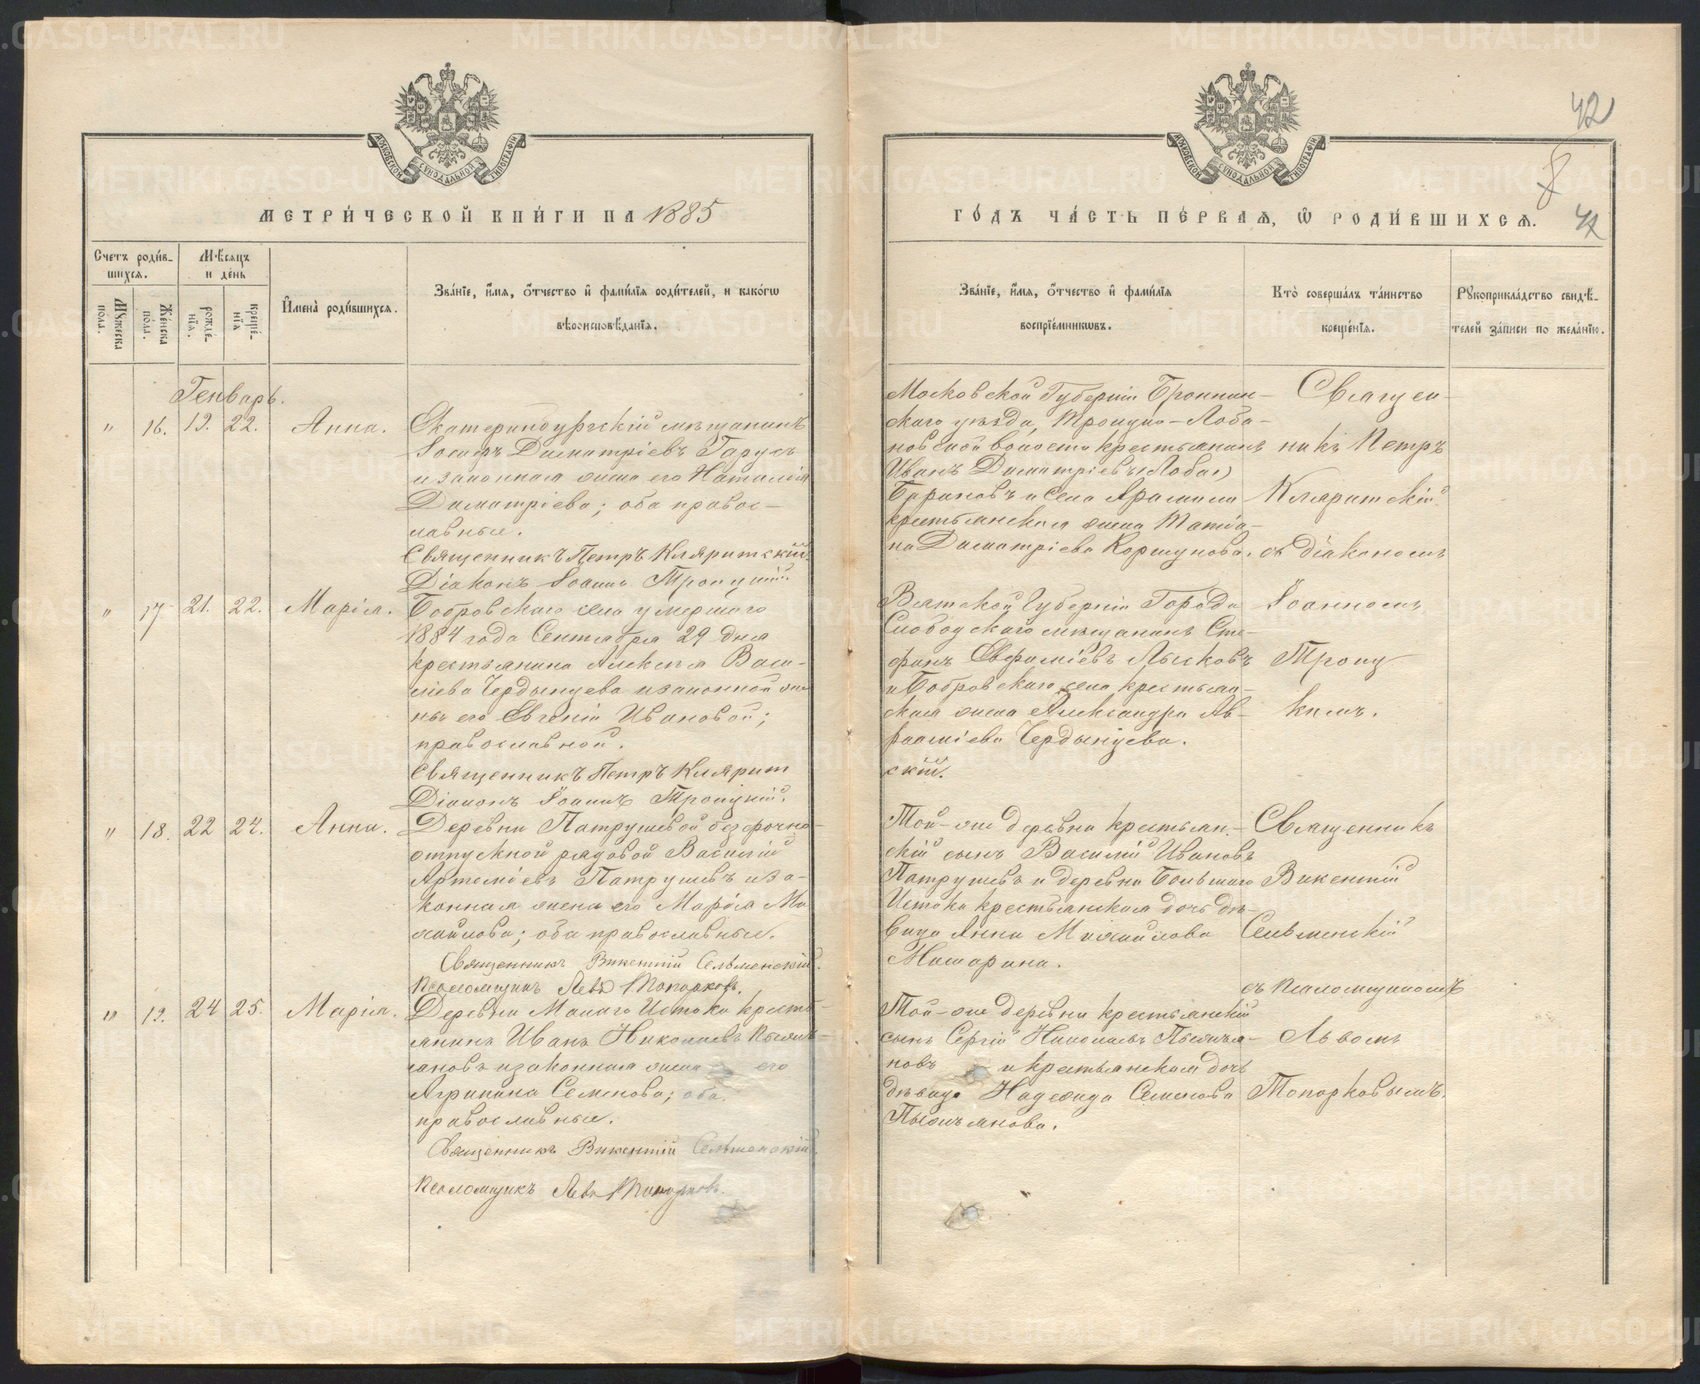 МЕТРИ́ЧЕСКОЙ КНИ́ГИ НА 1885
Счетъ роди́в-
шихся.
Мѣсяцъ
и де́нь
Мꙋжеска
пола.
Же́нска
по́ла.
рожде́-
нїѧ.
креще́-
нїѧ
И҆мена̀ роди́вшихсѧ.
Зва́нїе, и҆́мѧ, ѻ҆́тчество и҆ фами́лїѧ роди́телей, и како́гѡ
вѣроисповѣ́данїѧ.
Генварь.
" 16. 19. 22. Анна.
Екатеринбургскій мѣщанинъ
Іосифъ Димитріевъ Гарусъ
и законная жена его Наталія
Димитріева; оба правос-
лавные.
Священникъ Петръ Кляритскій
Діаконъ Іоаннъ Троицкій.
" 17 21. 22. Марія.
Бобровскаго села умершаго
1884 года Сентября 29 дня
крестьянина Алексѣя Васи-
ліева Чердынцева и законной же-
ны его Евгеніи Ивановой;
православной.
Священникъ Петръ Клярит
Діаконъ Іоаннъ Троицкій.
" 18. 22 24. Анна.
Деревни Патрушевой безсрочно-
отпускной рядовой Василій
Артеміевъ Патрушевъ и за-
конная жена его Марія Ми
хайлова; оба православные.
Священникъ Викентій Сельменскій.
Псаломщикъ Левъ Топорковъ.
" 19. 24 25. Марія.
Деревни Малаго Истока кресть-
янинъ Иванъ Николаевъ Пьянк-
ановъ и законная жена его
Агрипина Семенова; оба
православные.
Священникъ Викентій Сельменскій
Псаломщикъ Левъ Топорковъ.
42
8
42
ГО́ДЪ ЧА́СТЬ ПЕ́РВАѦ, Ѡ҆ РОДИ́ВШИХСѦ.
Зва́нїе, и҆́мѧ, ѻ҆́тчество и҆ фами́лїѧ
воспрїе́мниковъ.
Кто̀ соверша́лъ та́инство
креще́нїѧ.
Рꙋкоприкла́дство свидѣ́-
телей за́писи по жела́нїю.
Московской Губерніи Бронниц-
скаго уѣзда, Троицко-Лоба-
новской волости крестьянинъ
Иванъ Димитріевъ (Лобас)
Бариновъ и села Арамили
крестьянская жена Матіа-
на Димитріева Коршунова.
Священ-
никъ Петръ
Кляритскій
съ діакономъ
Вятской Губерніи Города
Слободскаго мѣщанинъ Сте-
фанъ Евфиміевъ Лысковъ
и Бобровскаго села крестьян-
ская жена Александра Ав-
рааміева Чердынцева.
скій.
Іоанномъ
Троиц
кимъ.
Той-же деревни крестьян.-
скій сынъ Василій Ивановъ
Патрушевъ и деревни Большаго
Истока крестьянская дочь дѣ-
вица Анна Михайлова
Машарина.
Священникъ
Викентій
Сельменскій
съ псаломщикомъ
Той-же деревни крестьянскій
сынъ Сергій Николаевъ
новъ и крестьянская дочь
дѣвица Надежда Семенова
Львомъ
Топорковымъ.
METRIKI.GASO-URAL.RU